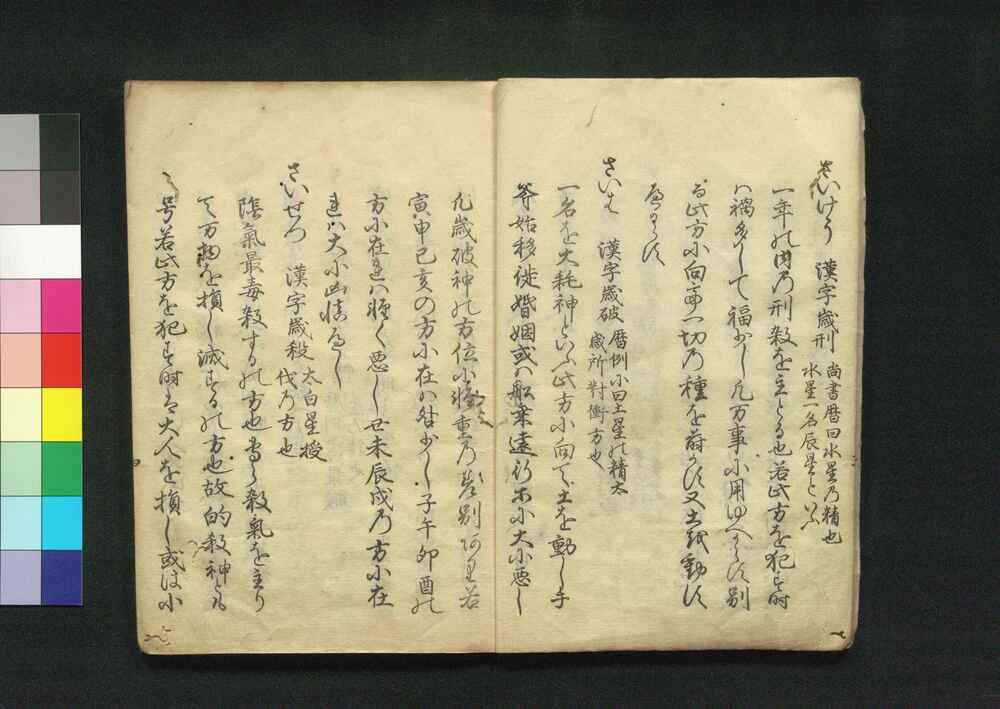 さいけう 漢字歳刑 尚書暦曰水星乃精也
水星一名辰星といふ
一年の内乃刑殺を主とる也若此方を犯す時
ハ禍多して福少し凡万事に用ゆへからす別
而此方に向て一切乃種を蒔かす又土を動す
へからす
さいは 漢字歳破 暦例に曰土星の精太
歳所対衝方也
一名を大耗神といふ此方に向て土を動し手
斧始移徙婚姻或ハ舩乗遠行ホに大に悪し
凡歳破神の方位に軽重乃差別あり若
寅申巳亥の方に在ハ咎少し子午卯酉の
方に在れハ軽く悪し丑未辰戌乃方に在
れハ大に凶深へし
さいせつ 漢字歳殺 太白星授
伐乃方也
陰氣最毒殺するの方也常に殺氣を主り
て万物を損し滅するの方也故的殺神とも
号若此方を犯す時ハ大人を損し或は小